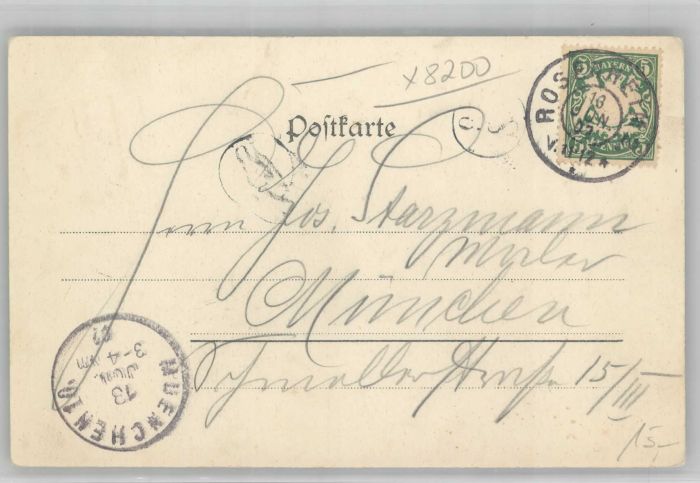 x8200
5 BAYERN 5
ROSENHEIM
Postkarte
Herrn Jos. Starzmann
München
15/III
15,-
MUENCHEN 10.
13
JUN.
3-4 Nm